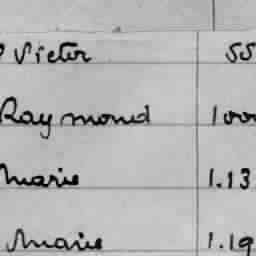 Victor 55
Raymond 1000
Marie 1.13
Marie 1.19